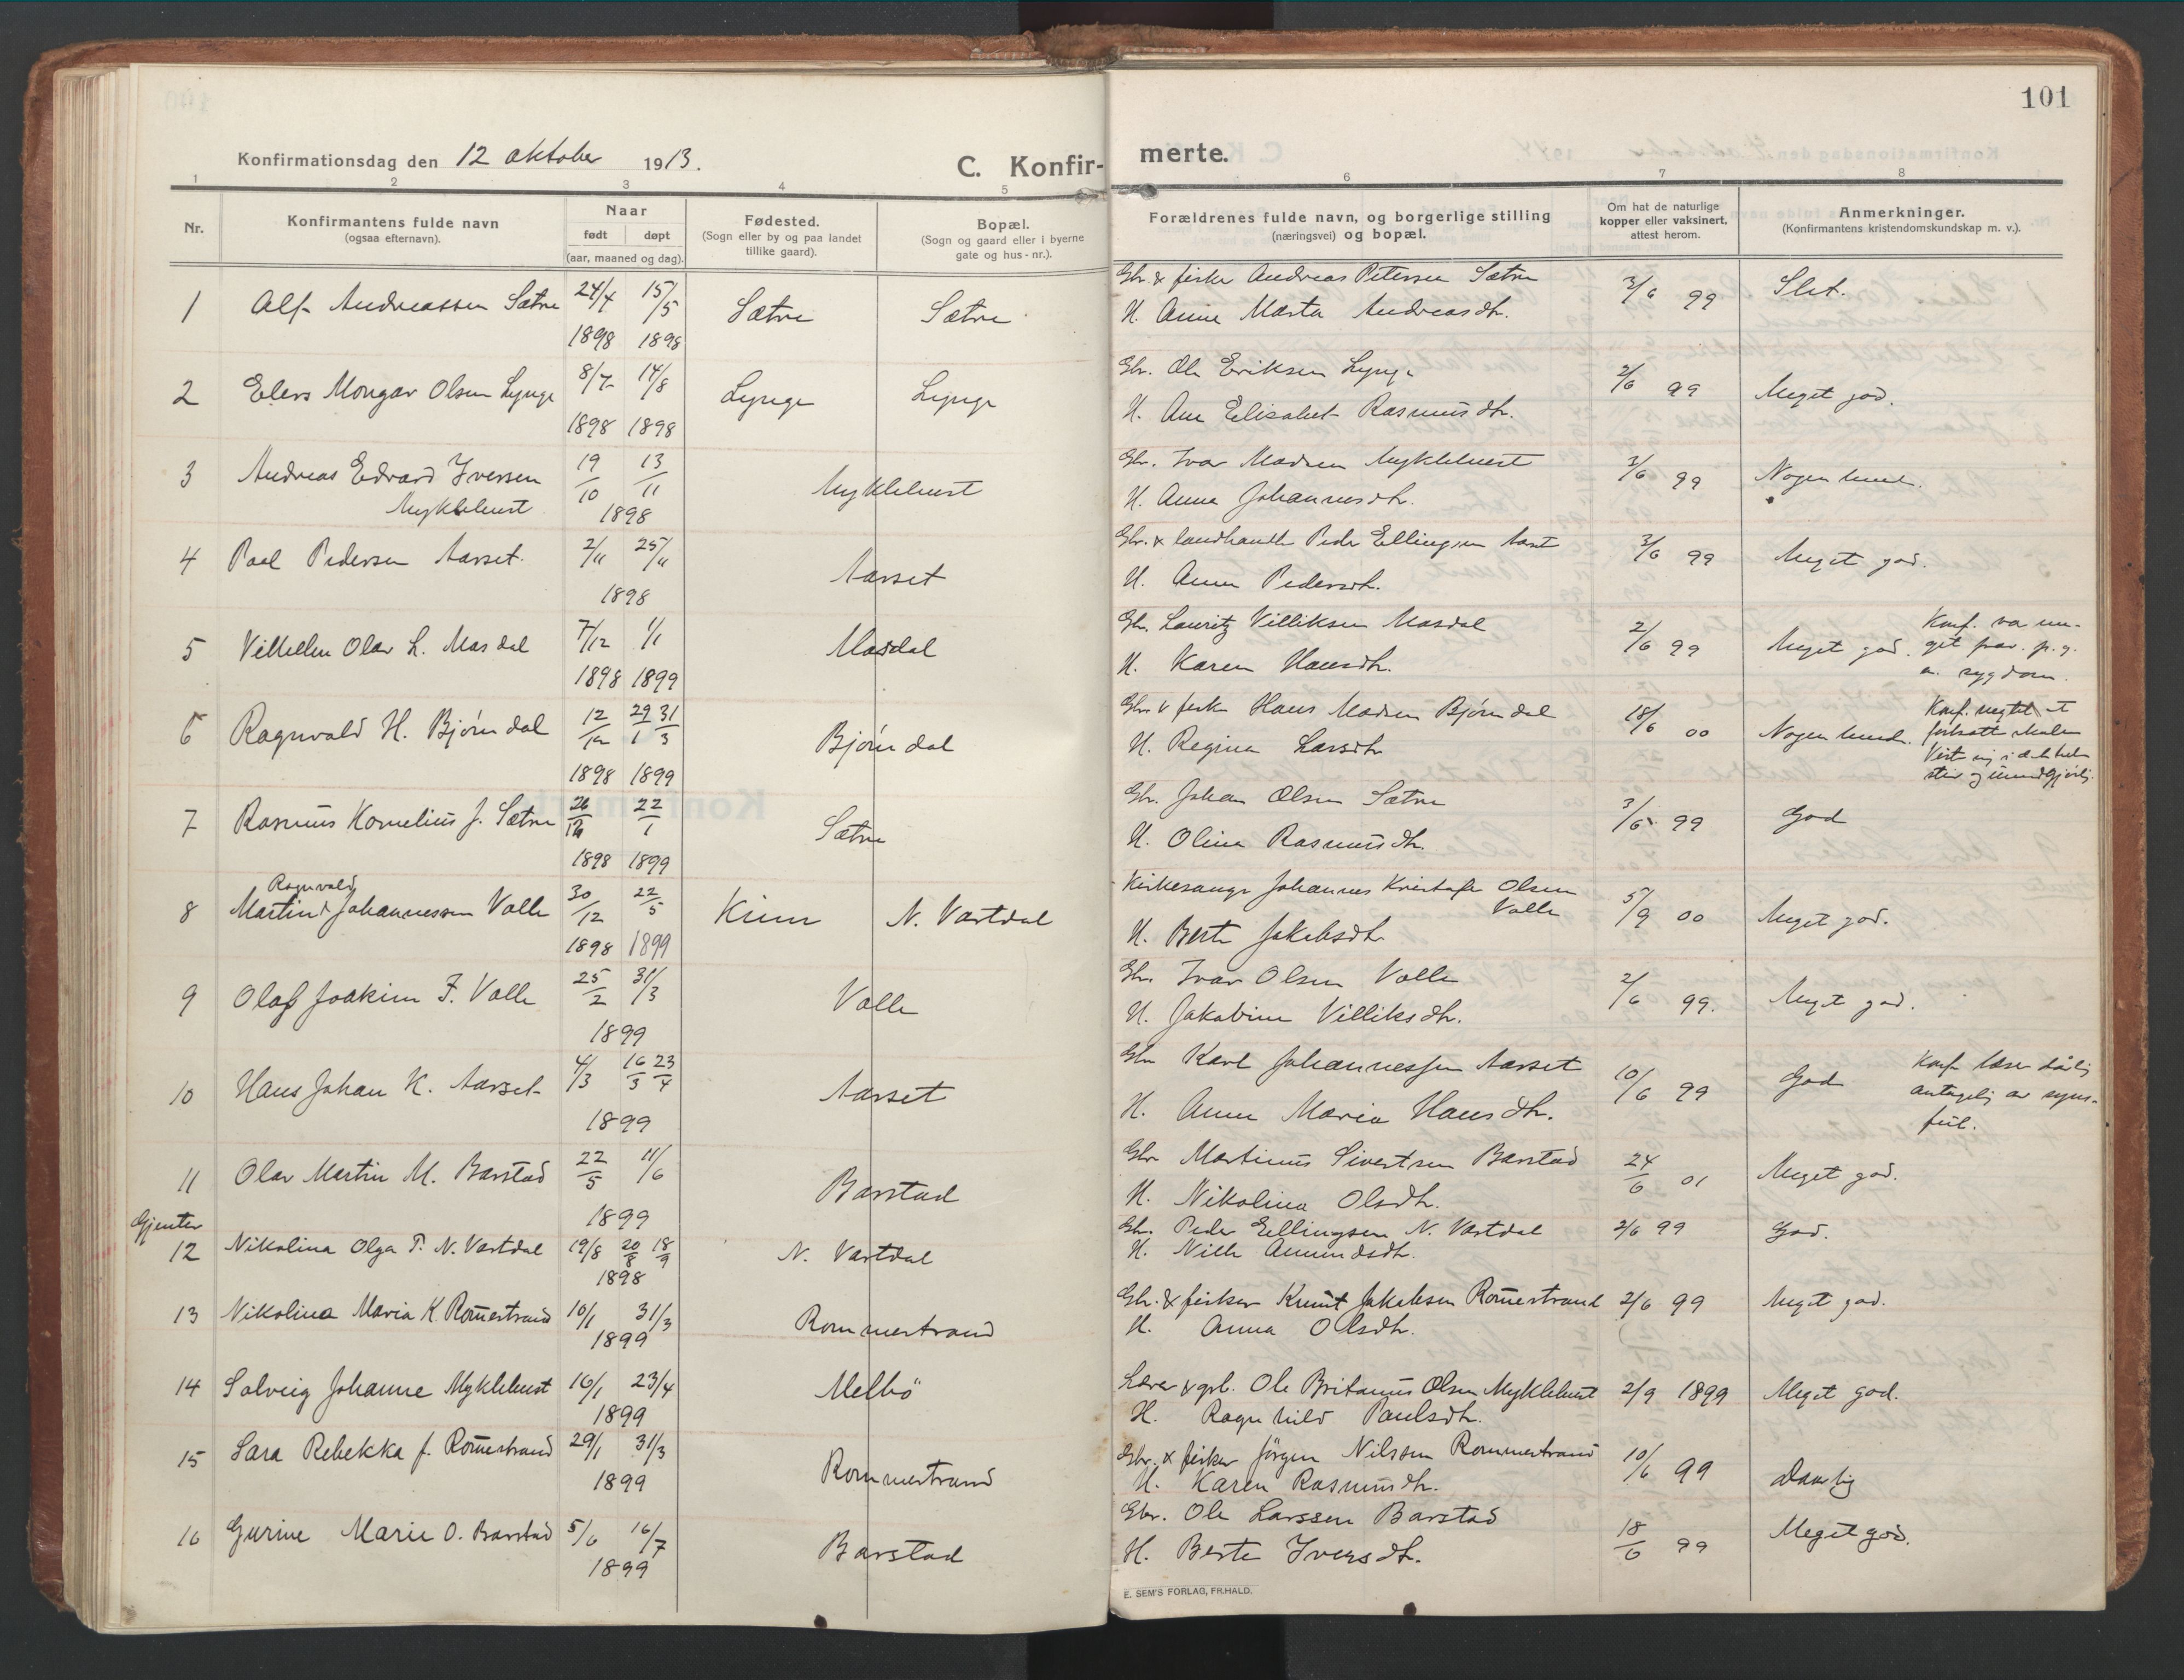 101
Konfirmationsdag den 12 oktober 1913.
C. Konfir-
merte.
1 2 3 4 5 6 7 8
Nr.
Konfirmantens fulde navn
(ogsaa efternavn).
Naar
født døpt
(aar, maaned og dag).
Fødested.
(Sogn eller by og paa landet
tillike gaard).
Bopæl.
(Sogn og gaard eller i byerne
gate og hus-nr.).
Forældrenes fulde navn, og borgerlige stilling
(næringsvei) og bopæl.
Om hat de naturlige
kopper eller vaksinert,
attest herom.
Anmerkninger.
(Konfirmantens kristendomskundskap m. v.).
1 Alf Andreassen Sætre 24/4 15/5 Sætre Sætre
1898 1898
Gbr. & fisker Andreas Petersen Sætre 3/6 99 Slet.
H. Anne Marta Andreasdtr.
2 Elers Mongar Olsen Lynge 8/7 14/8 Lynge Lynge
1898 1898
Gbr. Ole Eriksen Lynge 2/6 99 Meget god.
H. Ane Elisabet Rasmusdtr.
3 Andreas Edvard Iversen 19/10 13/11 Myklebust
Myklebust 1898
Gbr. Ivar Madsen Myklebust 2/6 99 Nogenlund.
H. Anna Johannesdtr.
4 Paal Pedersen Aarset. 2/11 25/11 Aarset
1898
Gbr. & landhandl. Peder Ellingsen Aarset 3/6 99 Meget god.
H. Anna Pedersdtr.
5 Vilhelm Olav L. Masdal 7/12 1/1 Masdal
1898 1899
Gbr. Lauritz Villiksen Masdal 2/6 99 Meget god.
H. Karen Hansdtr.
Konf. va me-
get frav. p. g.
a. sygdom.
6 Ragnvald H. Bjørndal 12/12 29/1 31/3 Bjørndal
1898 1899
Gbr. & fisker Hans Madsen Bjørndal 18/6 00 Nogenlund.
H. Regine Larsdtr
7 Rasmus Kornelius J. Sætre 26/12 22/1 Sætre
1898 1899
Gbr. Johan Olsen Sætre 3/6 99 God
H. Oline Rasmusdtr.
Ragnvald
8 Martin Johannessen Valle 30/12 22/5 Kinn N. Vartdal
1898 1899
Kirkesanger Johannes Kristofer Olsen
Valle 5/9 00 Meget god.
H. Berte Jakobsdtr
9 Olaf Joakim I. Valle 25/2 31/3 Valle
1899
Gbr Ivar Olsen Valle 2/6 99. Meget god.
H. Jakobine Villiksdtr.
10 Hans Johan K. Aarset 4/3 16/3 23/4 Aarset
1899
Gbr Karl Johannessen Aarset 10/6 99 God
H. Anne Maria Hansdtr.
Konf læser dårlig
antagelig av syns-
feil.
11 Olav Martin M. Barstad 22/5 11/6 Barstad
1899
Gbr Martinus Sivertsen Barstad 24/6 01 Meget god.
H. Nikolina Olsdtr.
Gjenter
12 Nikolina Olga P. N. Vartdal 19/8 20/8 18/9 N. Vartdal
1898
Gbr. Peder Ellingsen N. Vartdal 2/6 99 God.
H. Nille Amundsdtr.
13 Nikolina Maria K. Romestrand 10/1 31/3 Rommestrand
1899
Gbr. & fisker Knut Jakobsen Romestrand 2/6 99 Meget god.
H. Anna Olsdtr.
14 Solveig Johanne Myklebust 16/1 23/4 Melbö
1899
Lærer & gbr. Ole Britanus Olsen Myklebust 2/9 1899 Meget god.
H. Ragnhild Paulsdtr.
15 Sara Rebekka J. Romestrand 29/1 31/3 Rommestrand
1899
Gbr. & fisker Jörgen Nilssen Rommestrand 10/6 99 Daarlig
H. Karen Rasmusdtr.
16 Gurine Marie O. Barstad 5/6 16/7 Barstad
1899
Gbr. Ole Larssen Barstad 18/6 99 Meget god.
H. Berte Iversdtr.
E. SEM'S FORLAG, FR.HALD.